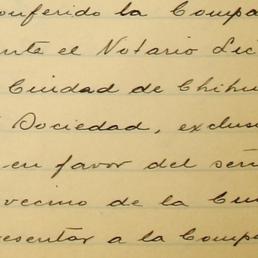 onferido la Compa
nte el Notario Lic
Ciudad de Chihu
Sociedad, exclus
en favor del señ
vecino de la Ciu
resentar a la Compa